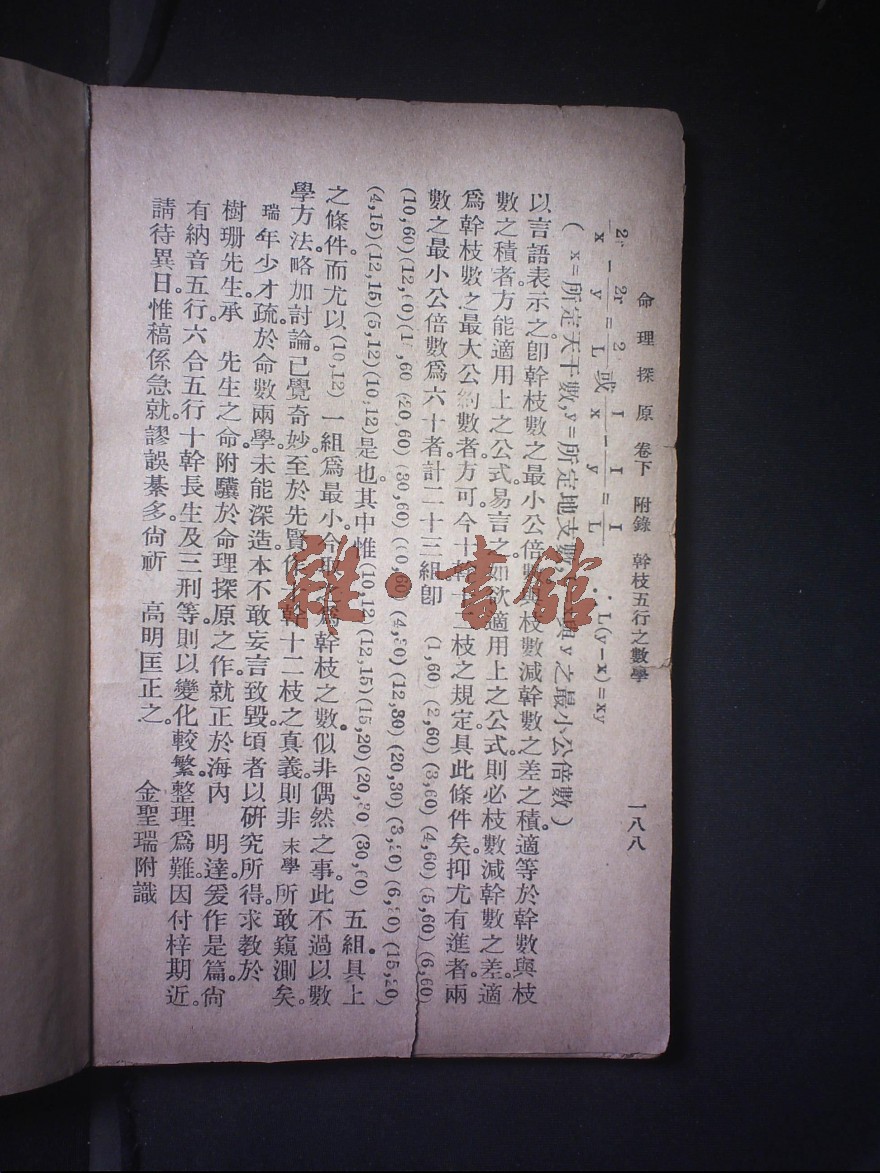 命理探原 卷下 附錄 幹枝五行之數學 一八八
2r/x - 2r/y = 2/L 或 I/x - I/y = I/L ∴ L(y-x)=xy
( x=所定天干數, y=所定地支 y之最小公倍數 )
以言語表示之。卽幹枝數之最小公倍 與枝數減幹數之差之積。適等於幹數與枝
數之積者。方能適用上之公式。易言之。如欲適用上之公式。則必枝數減幹數之差。適
爲幹枝數之最大公約數者。方可。今十 十二枝之規定。具此條件矣。抑尤有進者。兩
數之最小公倍數爲六十者。計二十三組。卽 (1,60) (2,60) (3,60) (4,60) (5,60) (6,60)
(10,60) (12,60) (15,60) (20,60) (30,60) (60,60) (4,30) (12,30) (20,30) (3,20) (6,20) (15,20)
(4,15) (12,15) (5,12) (10,12) 是也。其中惟 (10,12) (12,15) (15,20) (20,30) (30,60) 五組。具上
之條件。而尤以 (10,12) 一組爲最小。今 爲幹枝之數。似非偶然之事。此不過以數
學方法。略加討論。已覺奇妙。至於先賢作 幹十二枝之眞義。則非 末學 所敢窺測矣。
瑞 年少才疏。於命數兩學。未能深造。本不敢妄言致毀。頃者以硏究所得。求敎於
樹珊先生。承 先生之命。附驥於命理探原之作。就正於海內 明達。爰作是篇。尙
有納音五行。六合五行。十幹長生及三刑等。則以變化較繁。整理爲難。因付梓期近。
請待異日。惟稿係急就。謬誤綦多。尙祈 高明匡正之。 金聖瑞附識
雜·書館